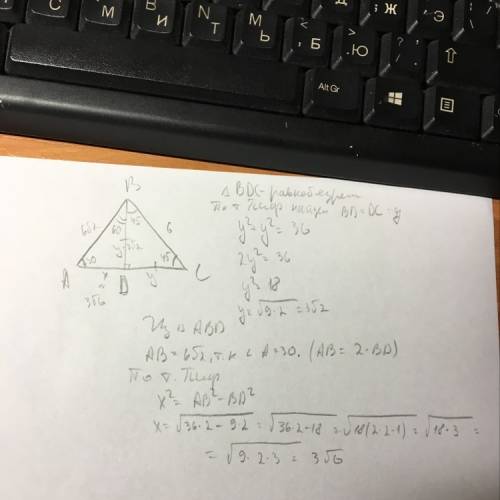 С
М
В
И
N
Т
М
Ь
<
, Б
>
. Ю
Д
; Ж
Э
Alt Gr
B
6√2
60
45
6
y
3√2
A
30
x
D
y
45
C
3√6
Δ BDC - равнобедрен
По т. Пиф найдем BD=DC=y
y²+y²=36
2y²=36
y²=18
y=√9·2=3√2
Из Δ ABD
AB=6√2, т.к ∠A=30. (AB=2·BD)
По т. Пиф
x²=AB²-BD²
x=√36·2-9·2=√36·2-18=√18(2·2-1)=√18·3=
=√9·2·3=3√6